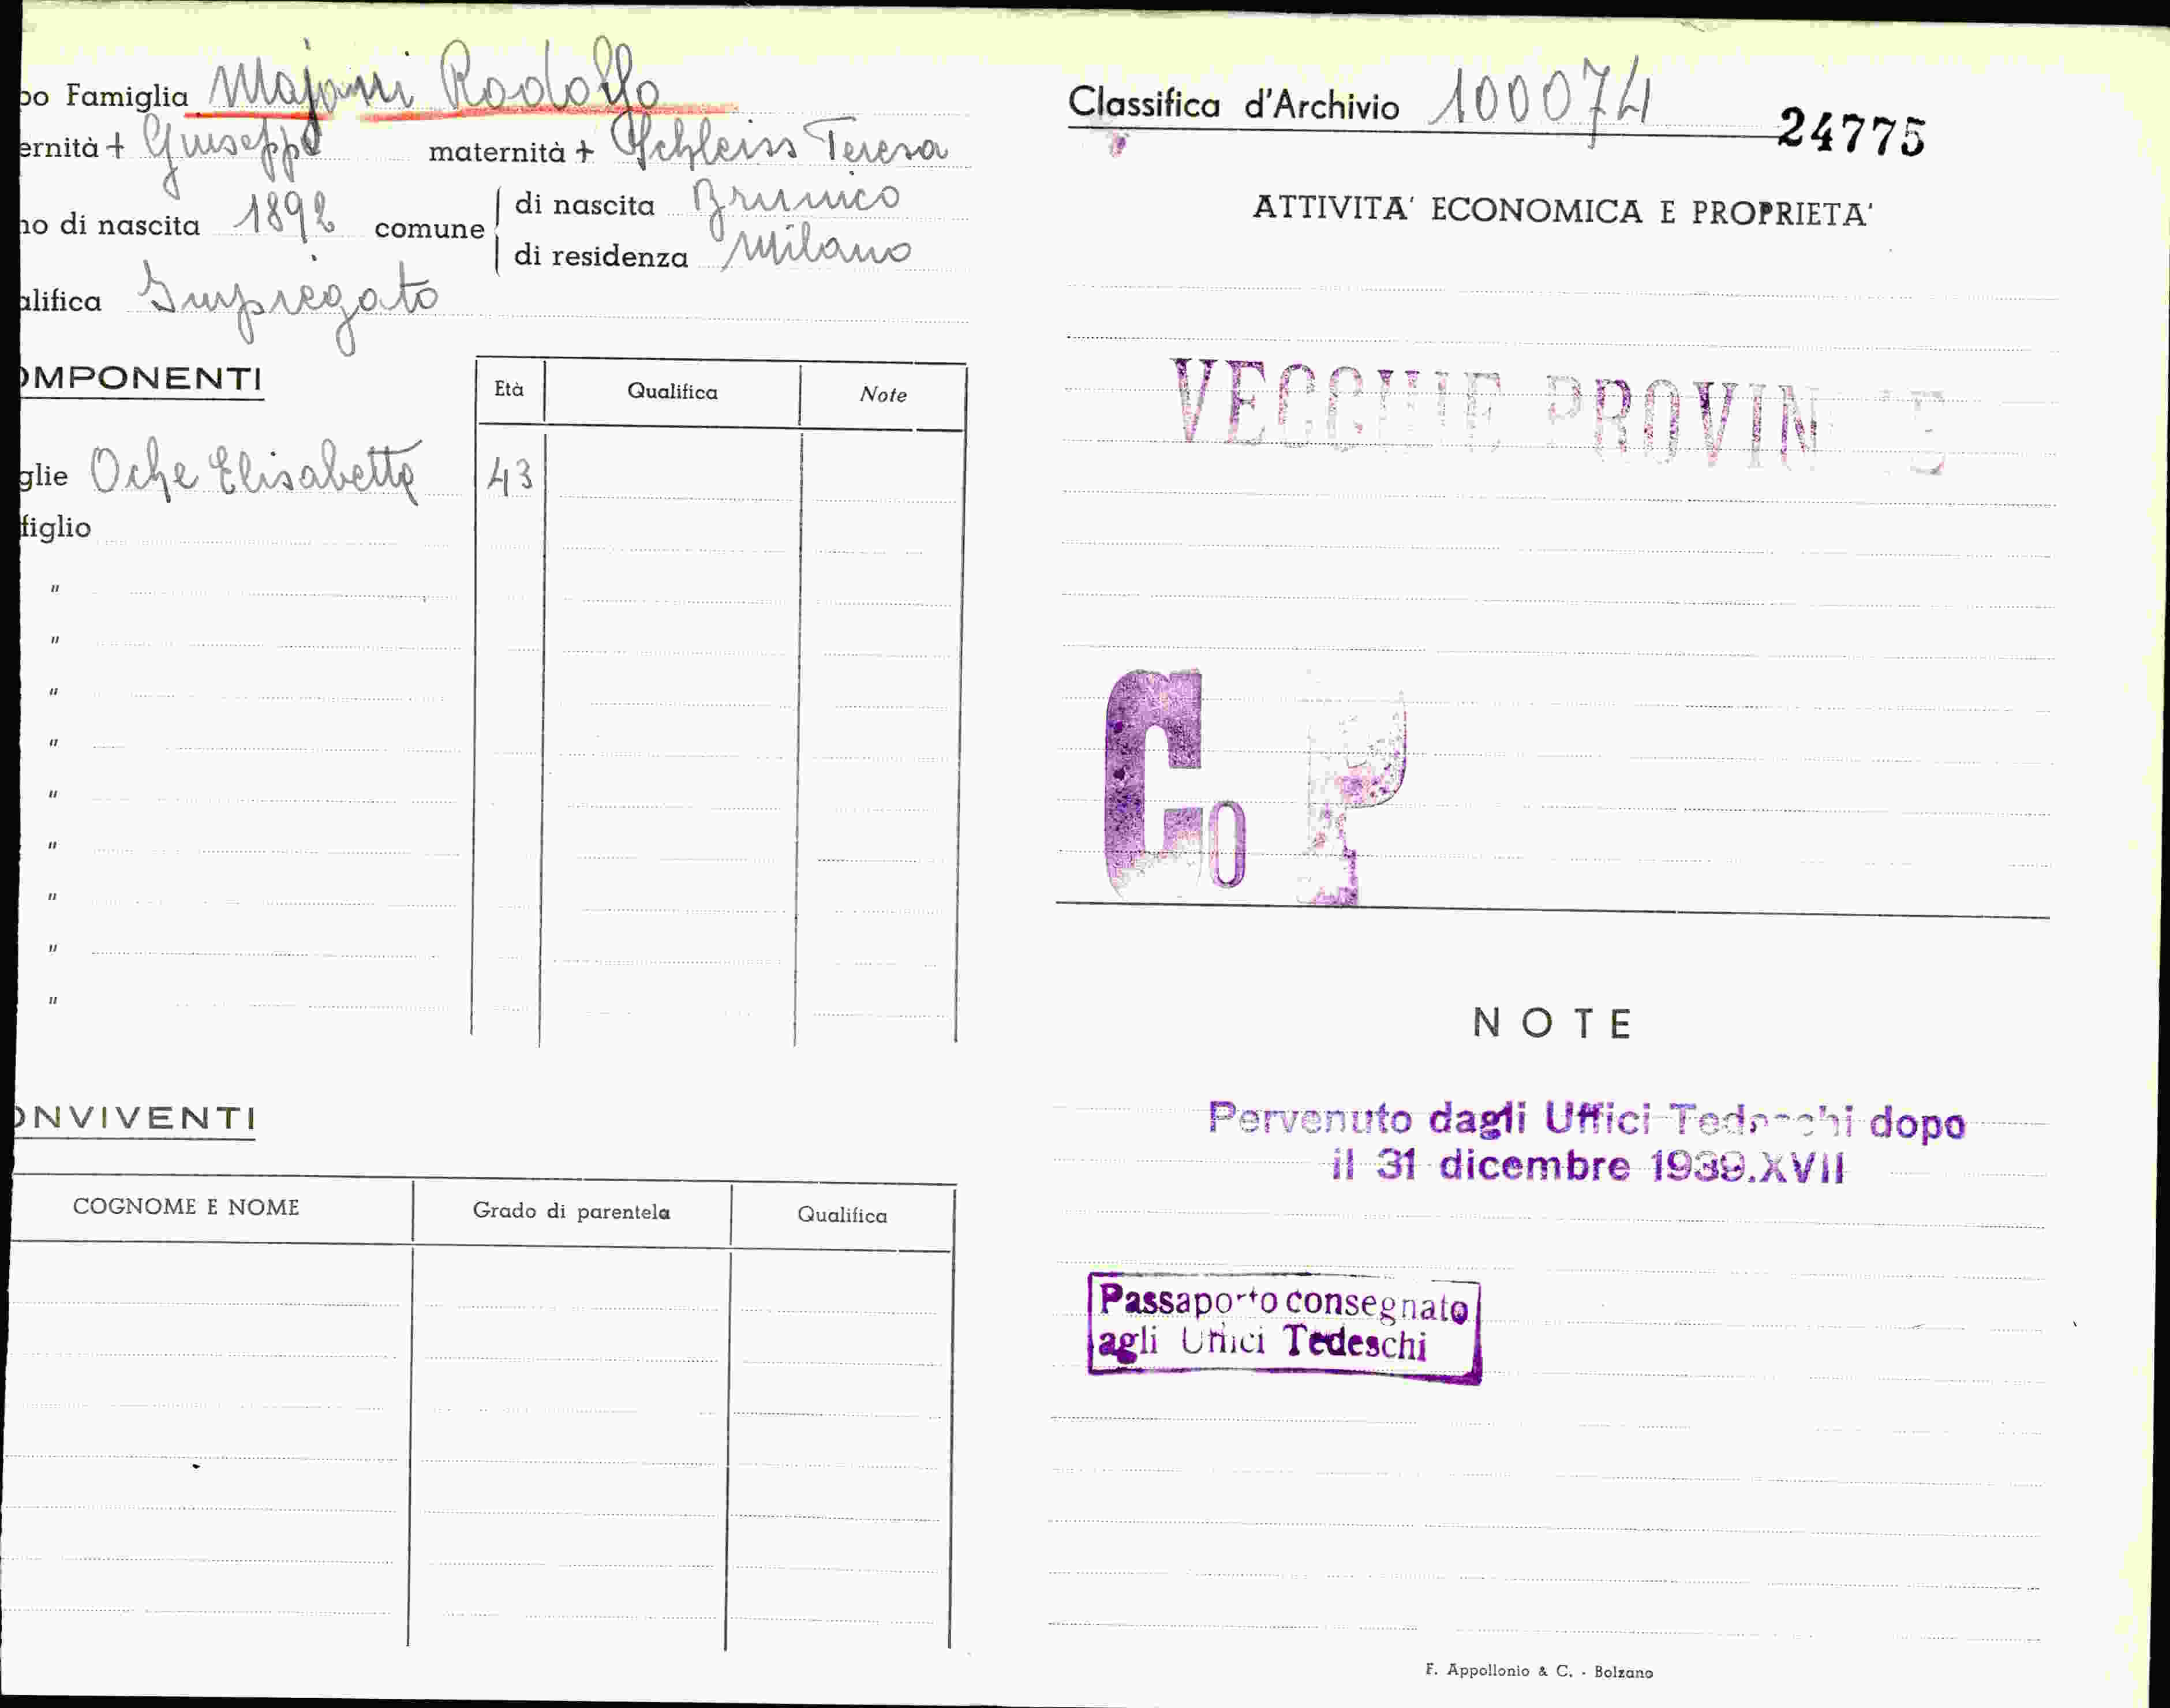 po Famiglia Majoni Rodolfo
ernità + Giuseppe maternità + Schleiss Teresa
no di nascita 1892 comune di nascita Brunico
di residenza Milano
alifica Impiegato
OMPONENTI
Età Qualifica Note
glie Oche Elisabetta 43
figlio
"
"
"
"
"
"
"
"
"
ONVIVENTI
COGNOME E NOME Grado di parentela Qualifica
Classifica d'Archivio 100074 24775
ATTIVITA' ECONOMICA E PROPRIETA'
VECCHIE PROVINCE
Co P
NOTE
Pervenuto dagli Uffici Tedeschi dopo
il 31 dicembre 1939.XVII
Passaporto consegnato
agli Uffici Tedeschi
F. Appollonio & C. - Bolzano